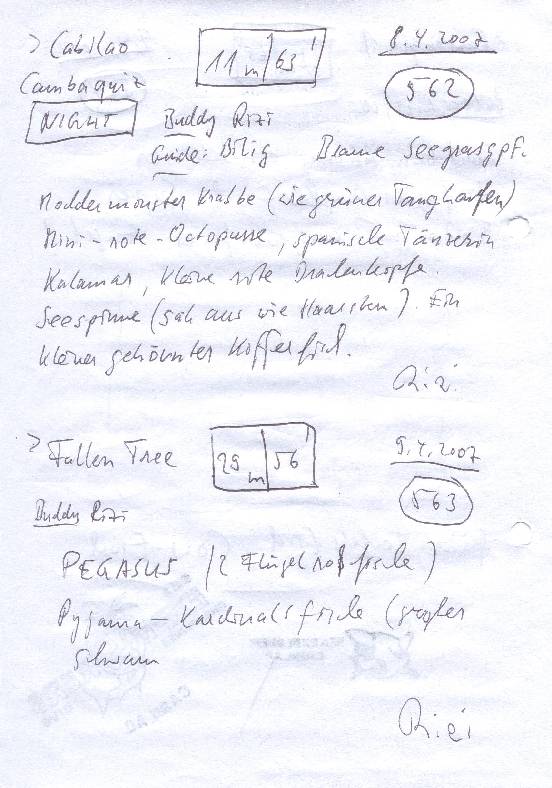 > Cabilao 11 m 63' 8.4.2007
Cambaquiz 562
NIGHT Buddy Rizi
Guide: Bilig Blaue Seegrasgpf.
Moddermonster Krabbe (wie grüner Tanghaufen)
Mini-rote-Octopusse, spanische Tänzerin
Kalamar, kleine rote Drachenköpfe.
Seespinne (sah aus wie Haarstern). Ein
kleiner gehörnter Kofferfisch.
Rizi
> Fallen Tree 29 m 56' 9.4.2007
563
Buddy Rizi
PEGASUS (2 Flügelroßfische)
Pyjama-Kardinalsfische (großer
Schwarm
Rizi